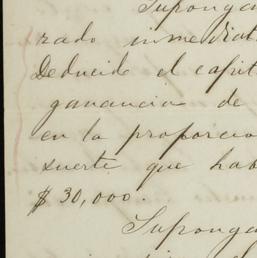 Suponga
rado inmediat
Deducido el capit
ganancia de
en la proporcio
suerte que hab
$ 30,000.
Suponga